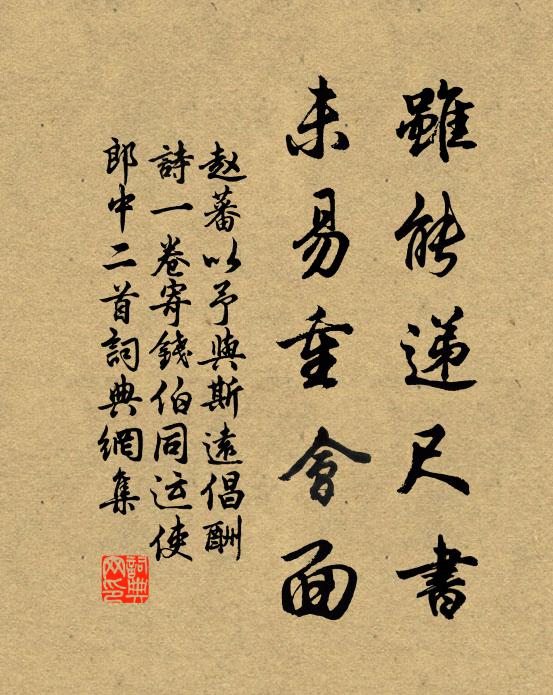 雖能递尺書
未易重會面
赵蕃以予與斯遠倡酬
詩一卷寄錢伯同运使
郎中二首詞典網集
詞典
网印